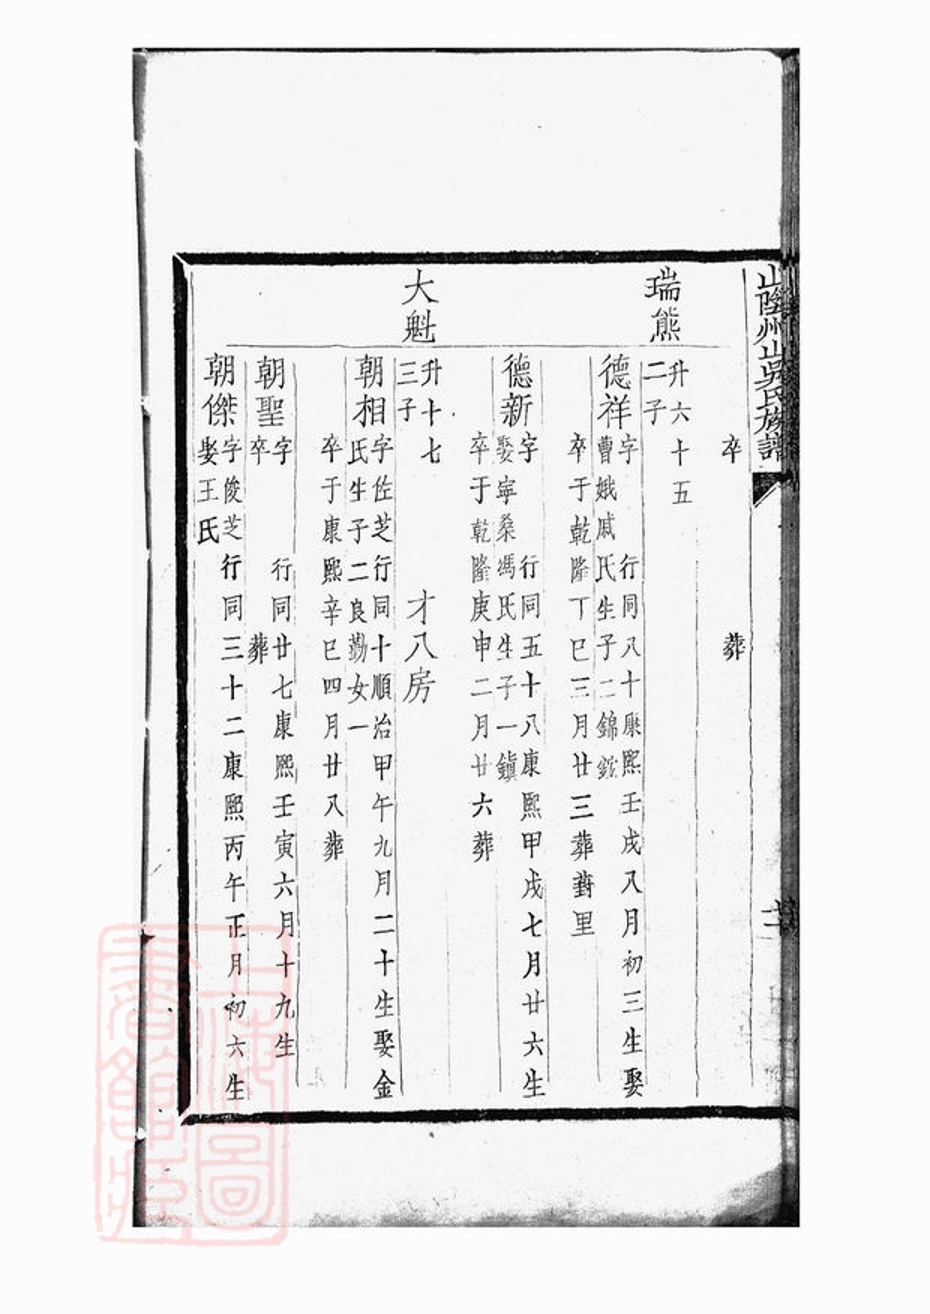 山陰州山吳氏族譜
卒 葬
瑞熊
升六十五
二子
德祥
字 行同八十康熙壬戌八月初三生娶
曹娥戚氏生子二錦
卒于乾隆丁巳三月廿三葬葑里
德新
字 行同五十八康熙甲戌七月廿六生
娶寧桑馮氏生子一鎮
卒于乾隆庚申二月廿六葬
大魁
升十七 才八房
三子
朝相
字佐芝行同十順治甲午九月二十生娶金
氏生子二良勷女一
卒于康熙辛巳四月廿八葬
朝聖
字 行同廿七康熙壬寅六月十九生
卒 葬
朝傑
字俊芝行同三十二康熙丙午正月初六生
娶王氏
上海圖書館藏